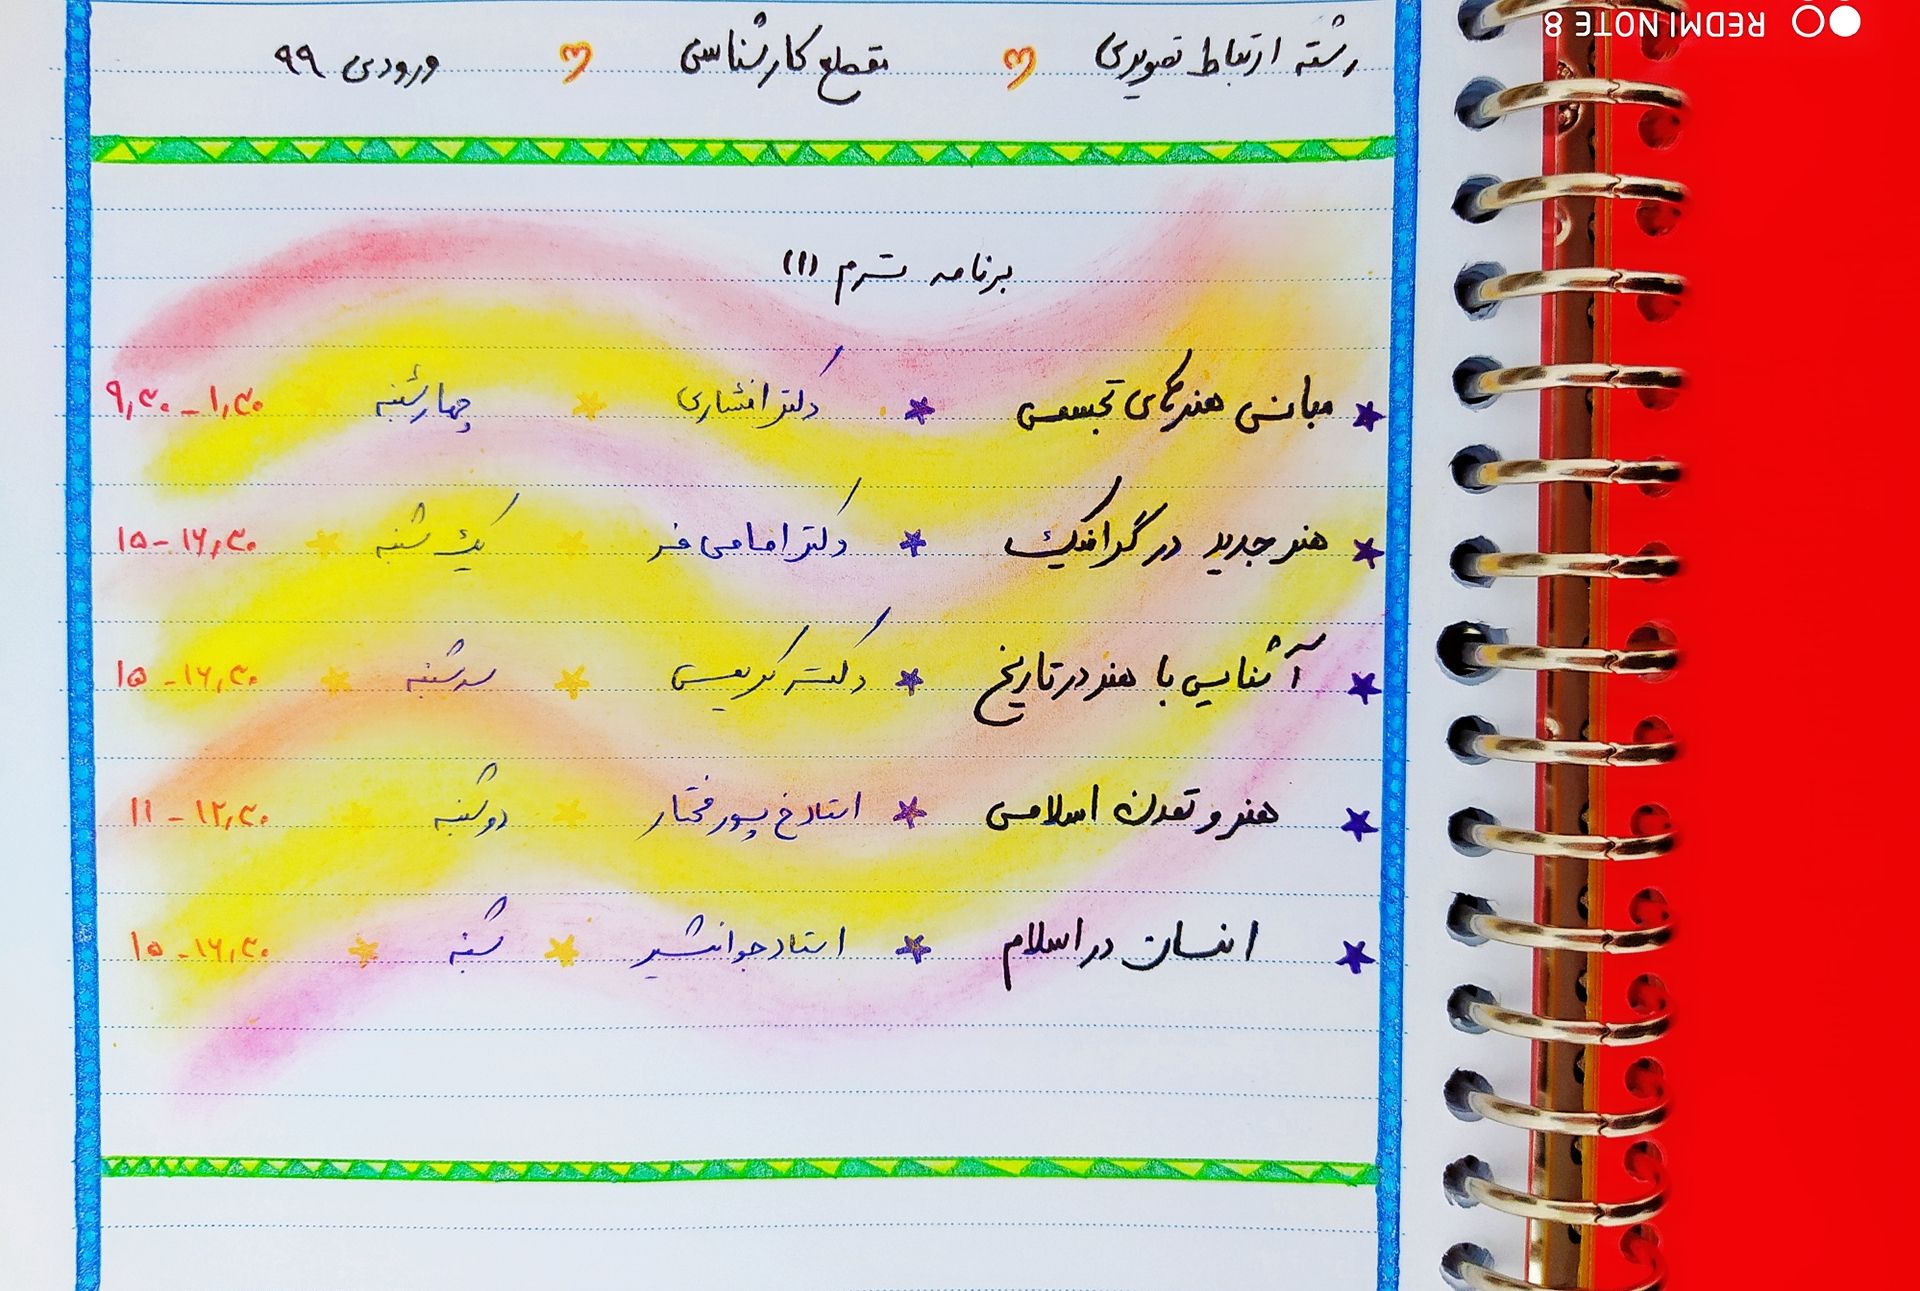 رشته ارتباط تصویری مقطع کارشناسی ورودی ۹۹
برنامه ترم (۱)
مبانی هنرهای تجسمی دکتر افشاری چهارشنبه ۹٫۳۰ - ۸٫۳۰
هنر جدید در گرافیک دکتر امامی فر یک شنبه ۱۵ - ۱۶٫۳۰
آشنایی با هنر در تاریخ دکتر سه شنبه ۱۵ - ۱۶٫۳۰
هنر و تمدن اسلامی استاد خ پور مختار دوشنبه ۱۱ - ۱۲٫۳۰
انسان در اسلام استاد جوانشیر شنبه ۱۵ - ۱۶٫۳۰
REDMI NOTE 8